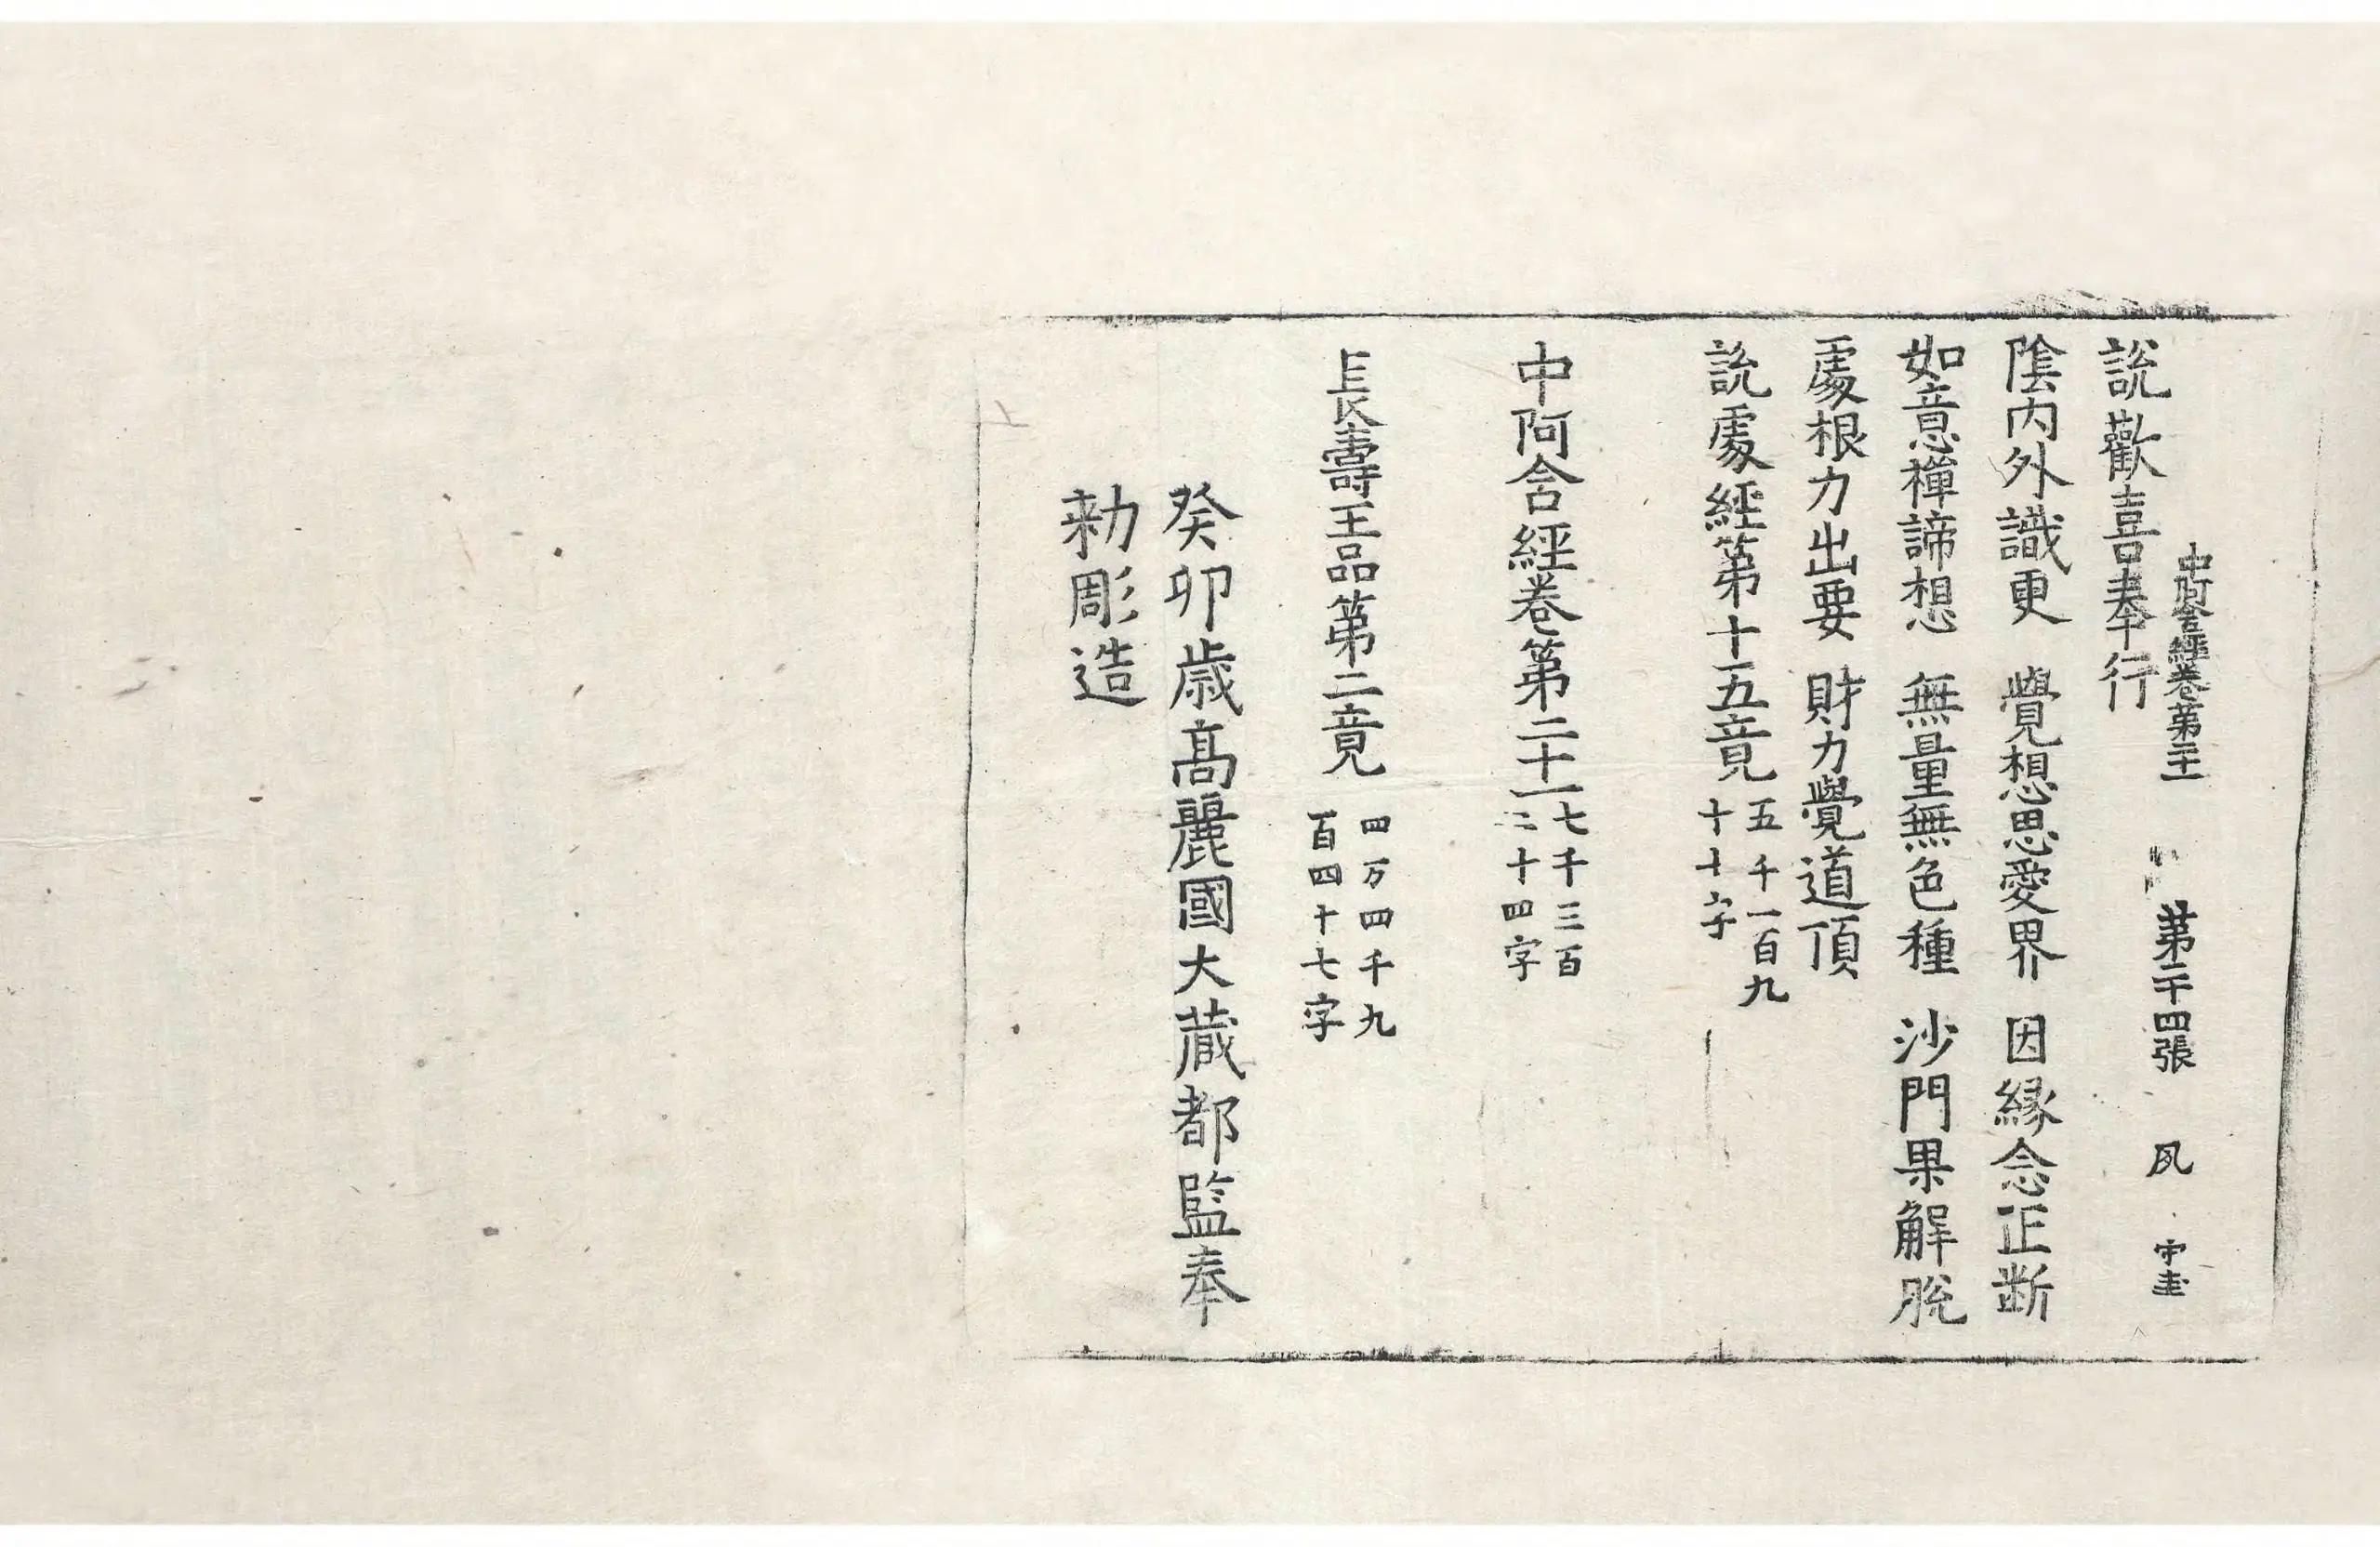 中阿含經卷第二十一 第二十四張 夙 守圭
說歡喜奉行
陰內外識更 覺想思愛界 因縁念正断
如意禪諦想 無量無色種 沙門果解脫
處根力出要 財力覺道頂
說處經第十五竟
五千一百九
十十字
中阿含經卷第二十一
七千三百
二十四字
長壽王品第二竟
四万四千九
百四十七字
癸卯歲高麗國大藏都監奉
勑彫造